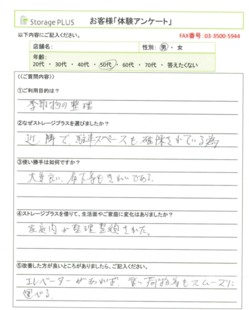 Storage PLUS お客様「体験アンケート」
以下内容をご記入ください。 FAX番号 03-3500-5944
店舗名: 性別: 男・女
年齢:
20代・30代・40代・50代・60代・70代・答えたくない
《《ご質問内容》
①ご利用目的は?
季節物の整理
②なぜストレージプラスを選びましたか?
近隣で駐車スペースも確保されている為
③使い勝手は如何ですか?
大変良い、廊下等もきれいである。
④ストレージプラスを借りて、生活面やご家庭に変化はありましたか?
家庭内が整理整頓された。
⑤改善した方が良いところがありましたら、ご記入ください。
エレベーターがあれば、重い荷物等もスムーズに
運べる。